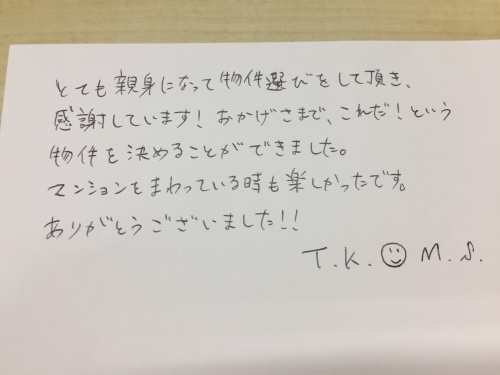 とても親身になって物件選びをして頂き、
感謝しています！おかげさまで、これだ！という
物件を決めることができました。
マンションをまわっている時も楽しかったです。
ありがとうございました!!
T.K.☺M.S.